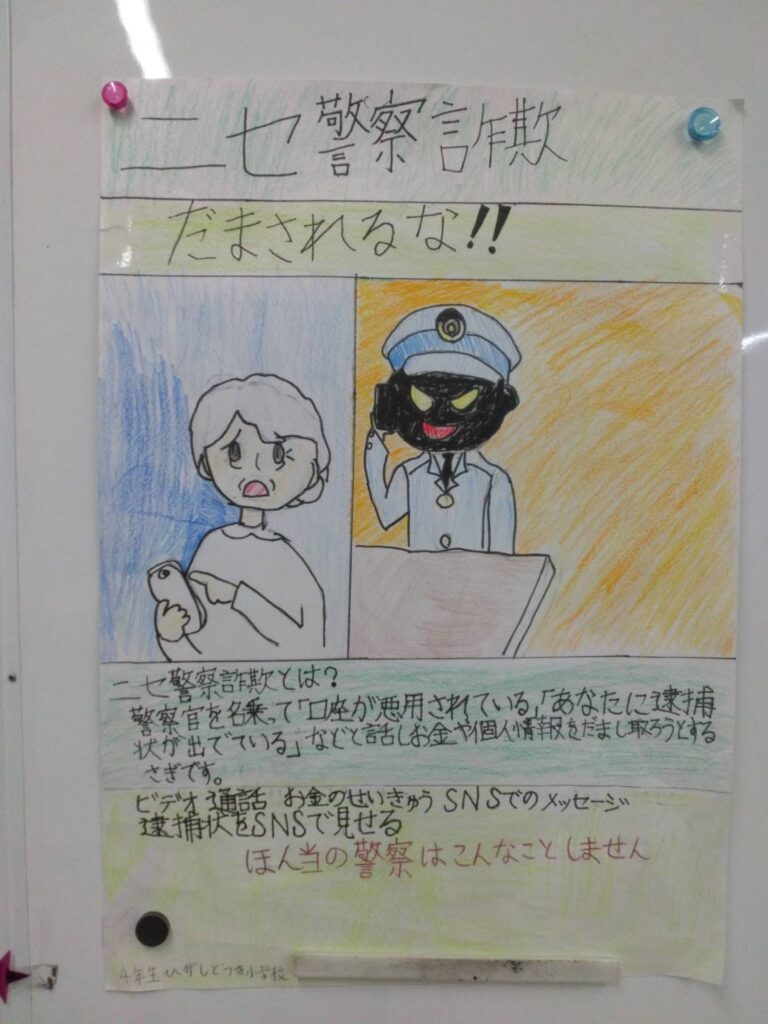 ニセ警察詐欺
だまされるな!!
ニセ警察詐欺とは?
警察官を名乗って「口座が悪用されている」「あなたに逮捕
状が出でている」などと話しお金や個人情報をだまし取ろうとする
さぎです。
ビデオ通話 お金のせいきゅう SNSでのメッセージ
逮捕状をSNSで見せる
ほん当の警察はこんなことしません
4年生 ひがしどうき小学校